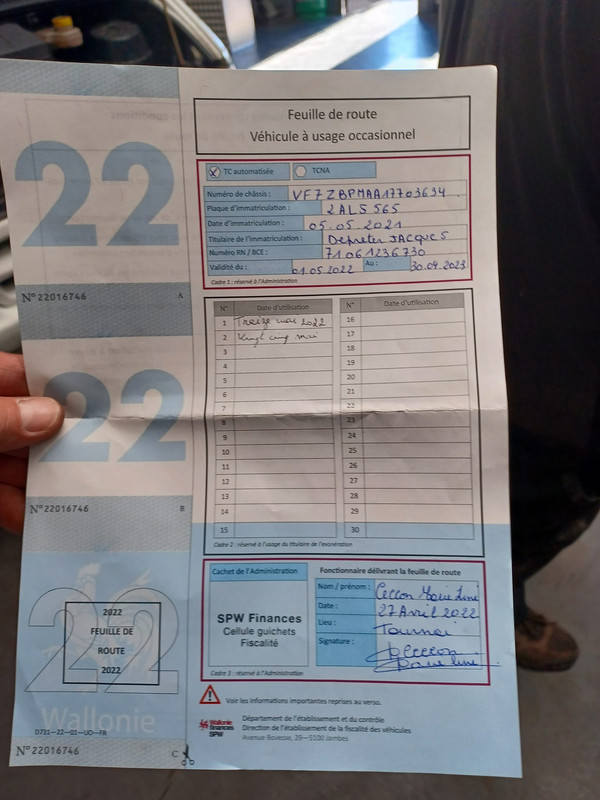 22
N° 22016746 A
22
N° 22016746 B
22
2022
FEUILLE DE
ROUTE
2022
Wallonie
D731-22-01-UO-FR
N° 22016746 C
Feuille de route
Véhicule à usage occasionnel
X TC automatisée TCNA
Numéro de châssis : VF7ZBPMAA17703634
Plaque d'immatriculation : 2ALS 565
Date d'immatriculation : 05.05.2021
Titulaire de l'immatriculation : Depreter JACQUES
Numéro RN / BCE : 71061236730
Validité du : 01.05.2022 Au : 30.04.2023
Cadre 1 : réservé à l'Administration
N° Date d'utilisation N° Date d'utilisation
1 Treize mai 2022 16
2 Vingt cinq mai 17
3 18
4 19
5 20
6 21
7 22
8 23
9 24
10 25
11 26
12 27
13 28
14 29
15 30
Cadre 2 : réservé à l'usage du titulaire de l'exonération
Cachet de l'Administration
SPW Finances
Cellule guichets
Fiscalité
Cadre 3 : réservé à l'Administration
Fonctionnaire délivrant la feuille de route
Nom / prénom : Ceccon Marie Line
Date : 27 Avril 2022
Lieu : Tournai
Signature : Ceccon
Marie Line
Voir les informations importantes reprises au verso.
Wallonie
finances
SPW
Département de l'établissement et du contrôle
Direction de l'établissement de la fiscalité des véhicules
Avenue Bovesse, 29-5100 Jambes